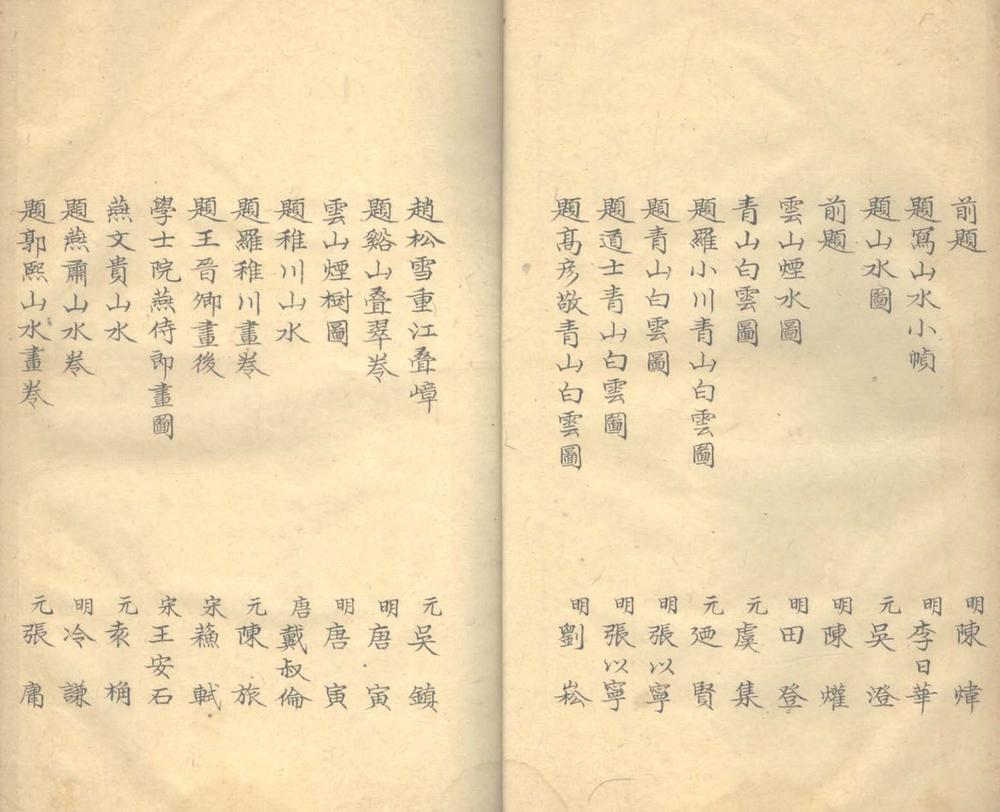 前題 明陳煒
題寫山水小幀 明李日華
題山水圖 元吳澄
前題 明陳爟
雲山煙水圖 明田登
青山白雲圖 元虞集
題羅小川青山白雲圖 元廼賢
題青山白雲圖 明張以寧
題道士青山白雲圖 明張以寧
題高彥敬青山白雲圖 明劉崧
趙松雪重江叠嶂 元吳鎮
題谿山叠翠卷 明唐寅
雲山煙樹圖 明唐寅
題稚川山水 唐戴叔倫
題羅稚川畫卷 元陳旅
題王晉卿畫後 宋蘓軾
學士院燕侍郎畫圖 宋王安石
燕文貴山水 元袁桷
題燕肅山水卷 明冷謙
題郭熙山水畫卷 元張庸